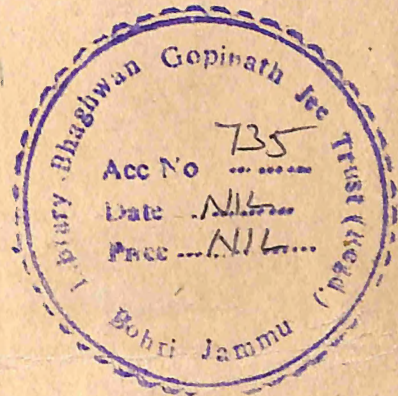 Library Bhaghwan Gopinath Jee Trust (Regd.)
Acc No 735
Date NIL
Price NIL
Bohri Jammu